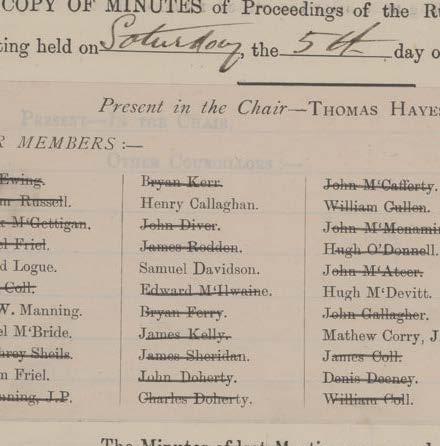 COPY OF MINUTES of Proceedings of the Ru
ting held on Saturday, the 5th day o
Present in the Chair—THOMAS HAYES
R MEMBERS :—
Ewing.
m Russell.
M‘Gettigan.
el Friel.
d Logue.
Coll.
W. Manning.
el M‘Bride.
hrey Sheils.
m Friel.
nning, J.P.
Bryan Kerr.
Henry Callaghan.
John Diver.
James Rodden.
Samuel Davidson.
Edward M‘Ilwaine.
Bryan Ferry.
James Kelly.
James Sheridan.
John Doherty.
Charles Doherty.
John M‘Cafferty.
William Cullen.
John M‘Menamin
Hugh O‘Donnell.
John M‘Ateer.
Hugh M‘Devitt.
John Gallagher.
Mathew Corry, J.
James Coll.
Denis Deeney.
William Coll.
The Minutes of last Meeting